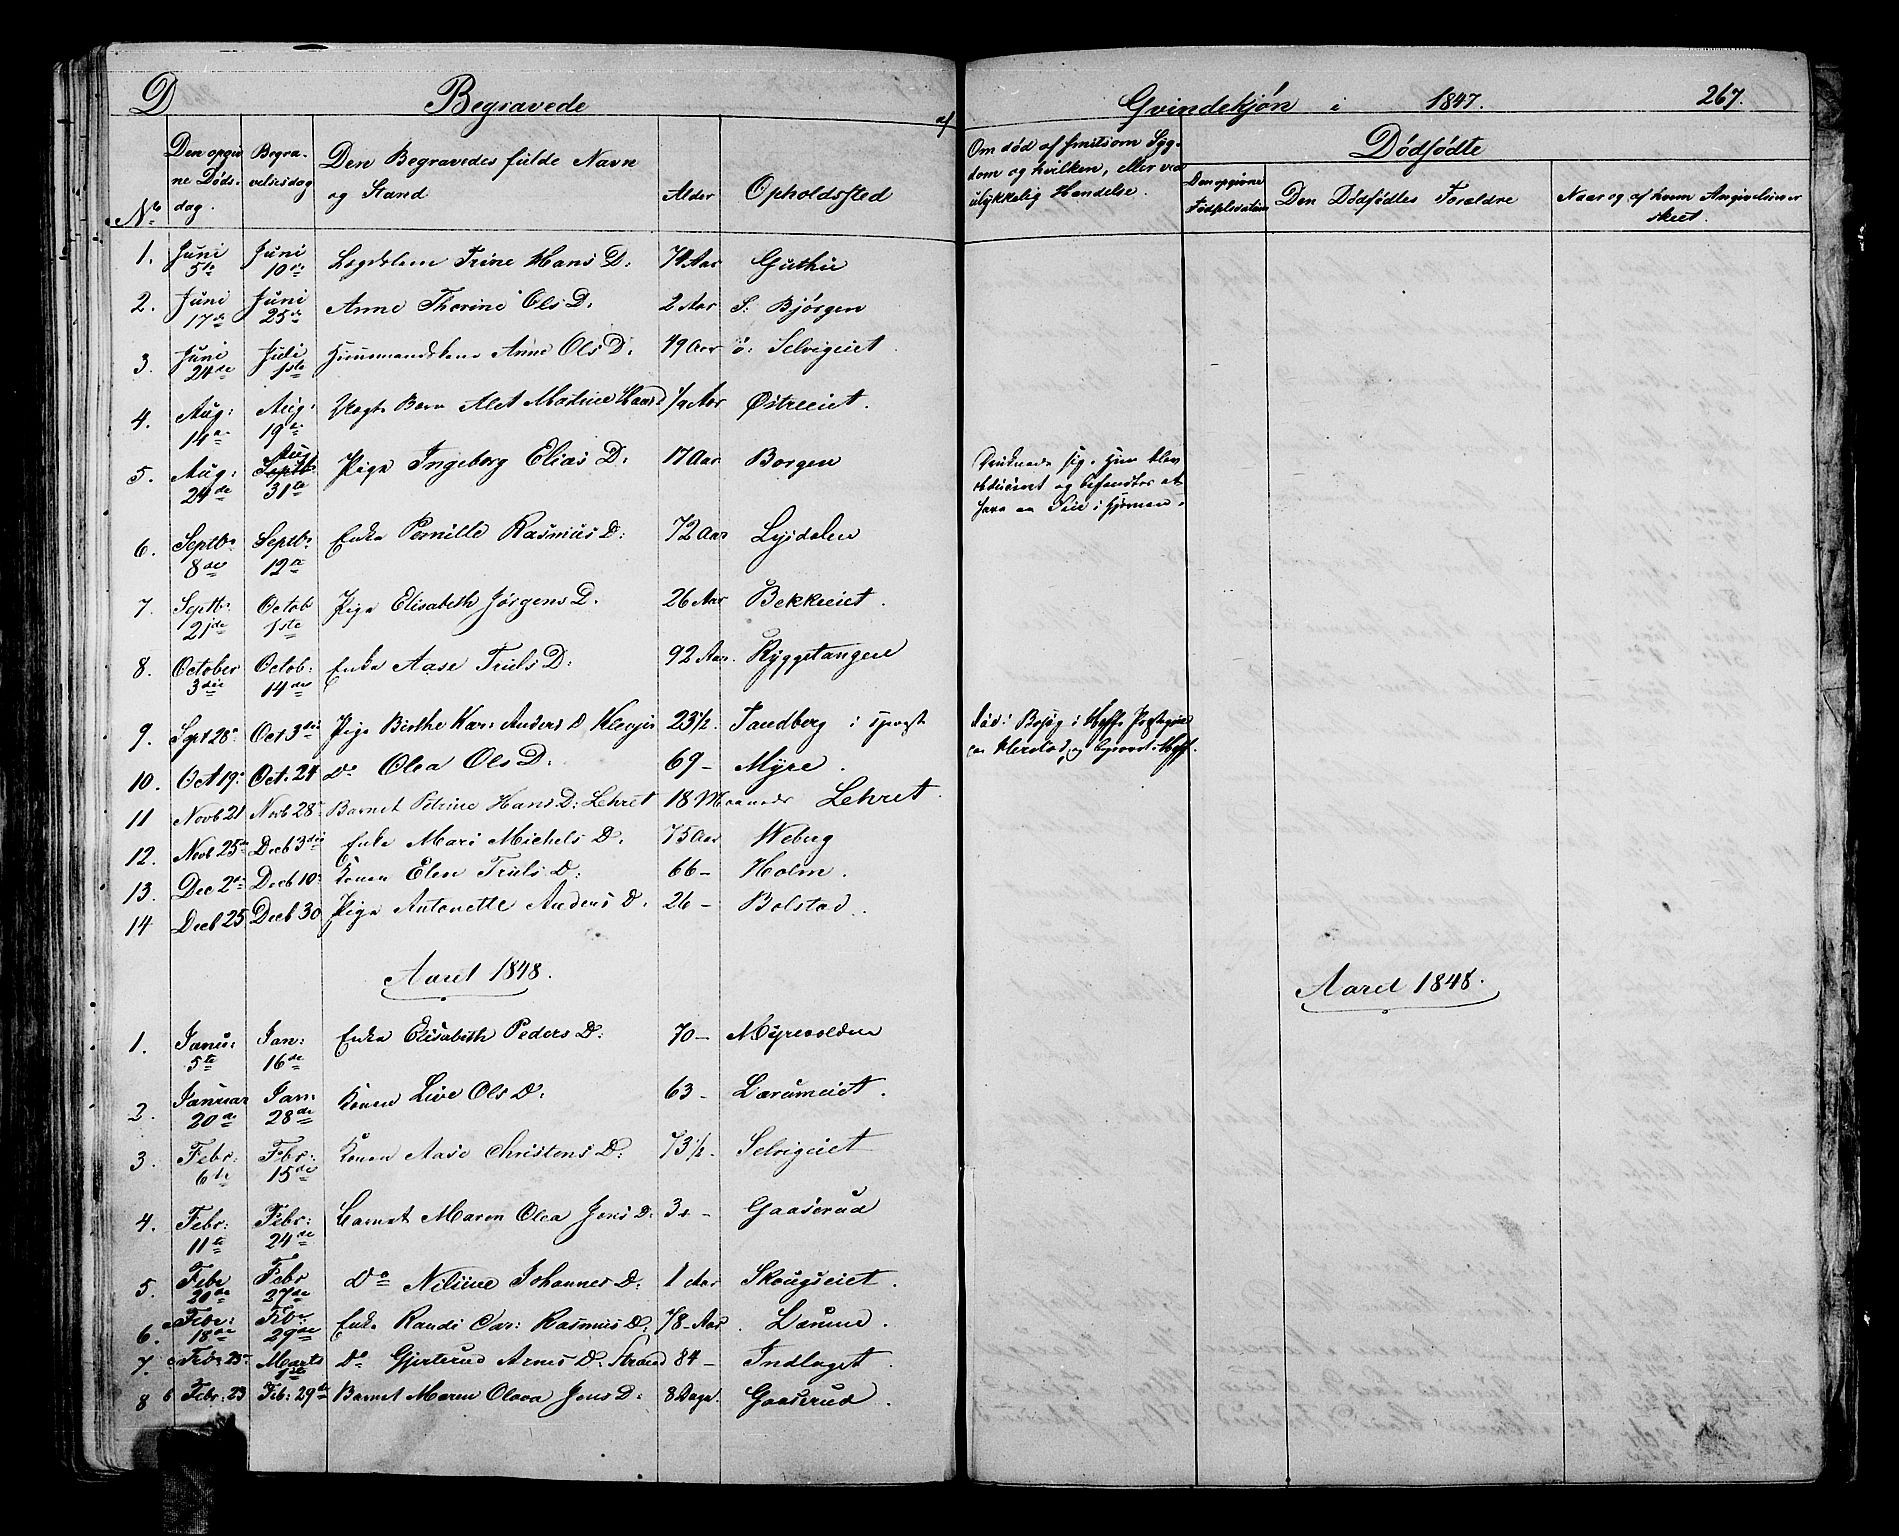 D Begravede af Qvindekjøn i 1847. 267.
No
Den opgivne Dødsdag.
Begravelsesdag
Den Begravedes fulde Navn og Stand
Alder
Opholdssted
Om død af smitsom Sygdom og hvilken, eller ved ulykkelig Hendelse.
Dødfødte
Den opgivne Fødselsdatum
Den Dødfødtes Forældre
Naar og af hvem Angivelsen er skeet.
1. Juni 5te Juni 10de Trine Hans D: 74 Aar Guthu
2. Juni 17de Juni 25de Anne Thorine Ols D. 2 Aar S: Bjørgen
3. Juni 24de Juli 1ste Huusmandskone Anne Ols D. 49 Aar ø: Selvigeiet
4. Aug: 14de Aug: 19de Barn Alet Matine Hans D 1/2 Aar Østreeiet.
5. Aug: 24de Septb: Aug 31te Pige Ingeborg Elias D. 17 Aar Borgen Druknede sig. Hun blev obduceret og befandtes at have en i Hjernen.
6. Septbr 8de Septbr 12te Enke Pernille Rasmus D: 72 Aar Lysdalen
7. Septbr 21de Octob 1ste Pige Elisabeth Jørgens D. 26 Aar Bekkeeiet.
8. October 3die Octob: 14de Enke Aase Truls D: 92 Aar. Ryggetangen
9. Sept 28de Oct 3die Pige Birthe Kari Anders D 23 1/2. Sandberg i
10. Oct 19de Oct. 24 Do Olea Ols D. 69 – Myre.
11 Novb 21 Novb 28de Barnet Petrine Hans D: Lehret 18 Maaneder Lehret.
12. Novb 25de Decb 3die Enke Mari Michels D. 75 Aar Weberg
13. Dec 2den Decb 10de Konen Elen Truls D: 66 – Holm.
14 Decb 25 Decb 30 Pige Antonette Anders D. 26 – Bolstad.
Aaret 1848. Aaret 1848.
1. Janu: 5te Jan: 16de Enke Elisabeth Peders D. 70 – Myrevolden
2. Januar 20de Jan: 28de Konen Live Ols D. 63 – Lærumeiet.
3. Febr: 6te Febr: 15de Konen Aase Christens D: 73 1/2. Selvigeiet
4. Febr: 11te Febr: 24de Barnet Maren Olea Jens D: – Gaaserud
5. Febr 20de Febr 27de Do Niline Johannes D: 1 Aar Skougseiet.
6. Febr: 18de Febr 29de Enke Randi Car: Rasmus D. 78 Aar. Lærum.
7. Febr 25de Marts 1ste Do Gjertrud Arnes D. Strand 84 – Indlaget.
8 Febr: 23 Feb: 29de Barnet Maren Olava Jens D: 8 Dage. Gaaserud.